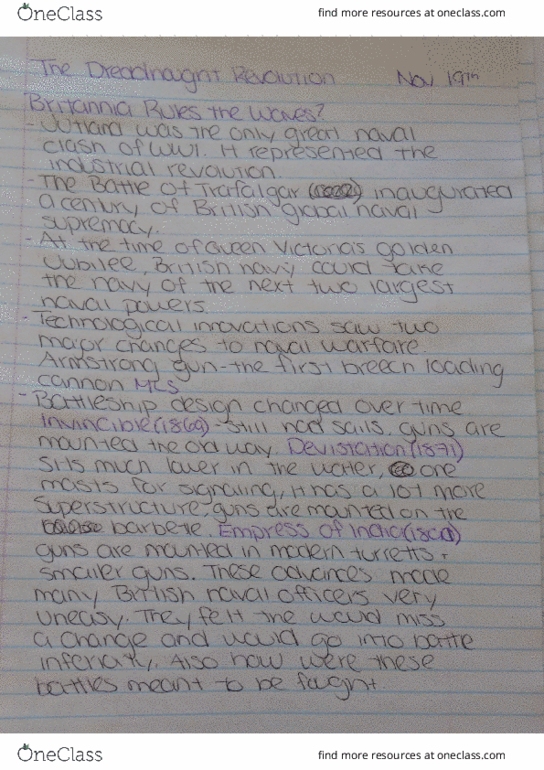 OneClass
find more resources at oneclass.com
The Dreadnaught Revolution Nov 19th
Britannia Rules the Waves?
- Jutland was the only great naval
clash of WW1. It represented the
industrial revolution.
- The Battle of Trafalgar inaugurated
a century of British global naval
supremacy.
- At the time of Queen Victoria's golden
Jubilee, British navy could take
the navy of the next two largest
naval powers.
- Technological innovations saw two
major changes to naval warfare.
Armstrong gun - the first breech loading
cannon
- Battleship design changed over time
Invincible (1869) - still had sails. guns are
mounted the old way. Devistation (1871)
sits much lower in the water, one
masts for signaling, it has a lot more
superstructure, guns are mounted on the
barbette. Empress of India
guns are mounted in modern turretts +
smaller guns. These advances made
many British naval officers very
uneasy. They felt the would miss
a change and would go into battle
inferiority. Also how were these
battles meant to be faught.
OneClass
find more resources at oneclass.com